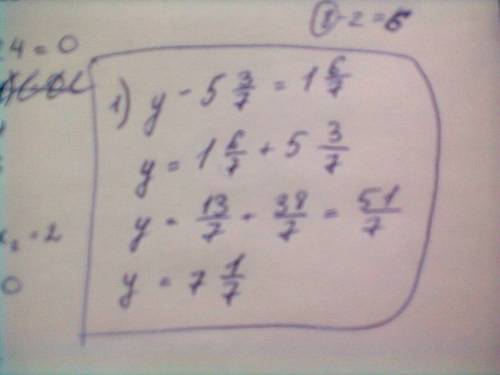 8 - 2 = 6
24 = 0
1) y - 5 3/7 = 1 6/7
y = 1 6/7 + 5 3/7
y = 13/7 - 38/7 = 51/7
y = 7 1/7
x₂ = 2
0